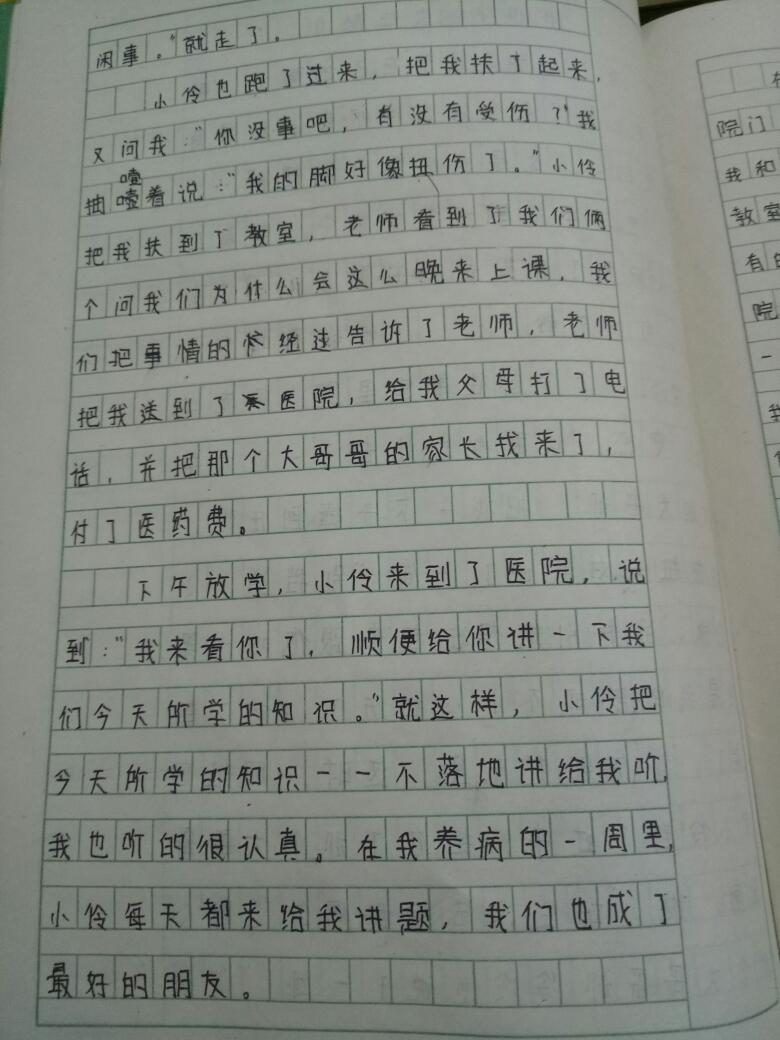 闲事。"就走了。
小伶也跑了过来，把我扶了起来，
又问我："你没事吧，有没有受伤？"我
抽噎着说："我的脚好像扭伤了。"小伶
把我扶到了教室，老师看到了我们俩
个问我们为什么会这么晚来上课，我
们把事情的经过告诉了老师，老师
把我送到了医院，给我父母打了电
话，并把那个大哥哥的家长找来了，
付了医药费。
下午放学，小伶来到了医院，说
到："我来看你了，顺便给你讲一下我
们今天所学的知识。"就这样，小伶把
今天所学的知识一一不落地讲给我听，
我也听的很认真。在我养病的一周里，
小伶每天都来给我讲题，我们也成了
最好的朋友。
院门
我和
教室
有的
院
一
我